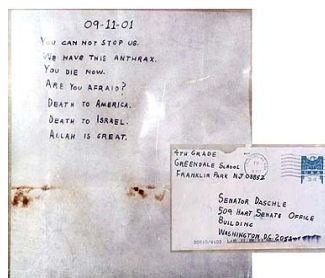 09-11-01
YOU CAN NOT STOP US.
WE HAVE THIS ANTHRAX.
YOU DIE NOW.
ARE YOU AFRAID?
DEATH TO AMERICA.
DEATH TO ISRAEL.
ALLAH IS GREAT.
4TH GRADE
GREENDALE SCHOOL
FRANKLIN PARK NJ 08852
SENATOR DASCHLE
509 HART SENATE OFFICE
BUILDING
WASHINGTON DC